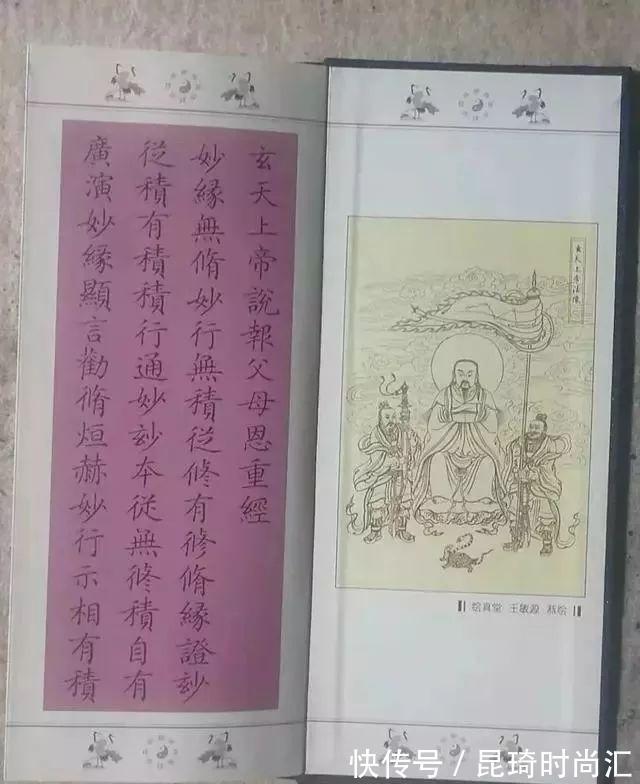 玄天上帝說報父母恩重經
妙緣無脩妙行無積從修有修脩緣證玅
從積有積積行通妙玅本從無修積自有
廣演妙緣顯言勸脩烜赫妙行示相有積
玄天上帝
绘真堂 王敏源 绘
快传号 / 昆琦时尚汇